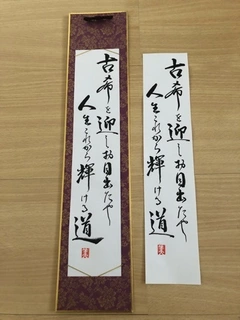 古希を迎しお目出たや
人生これから輝ける道
古希を迎しお目出たや
人生これから輝ける道